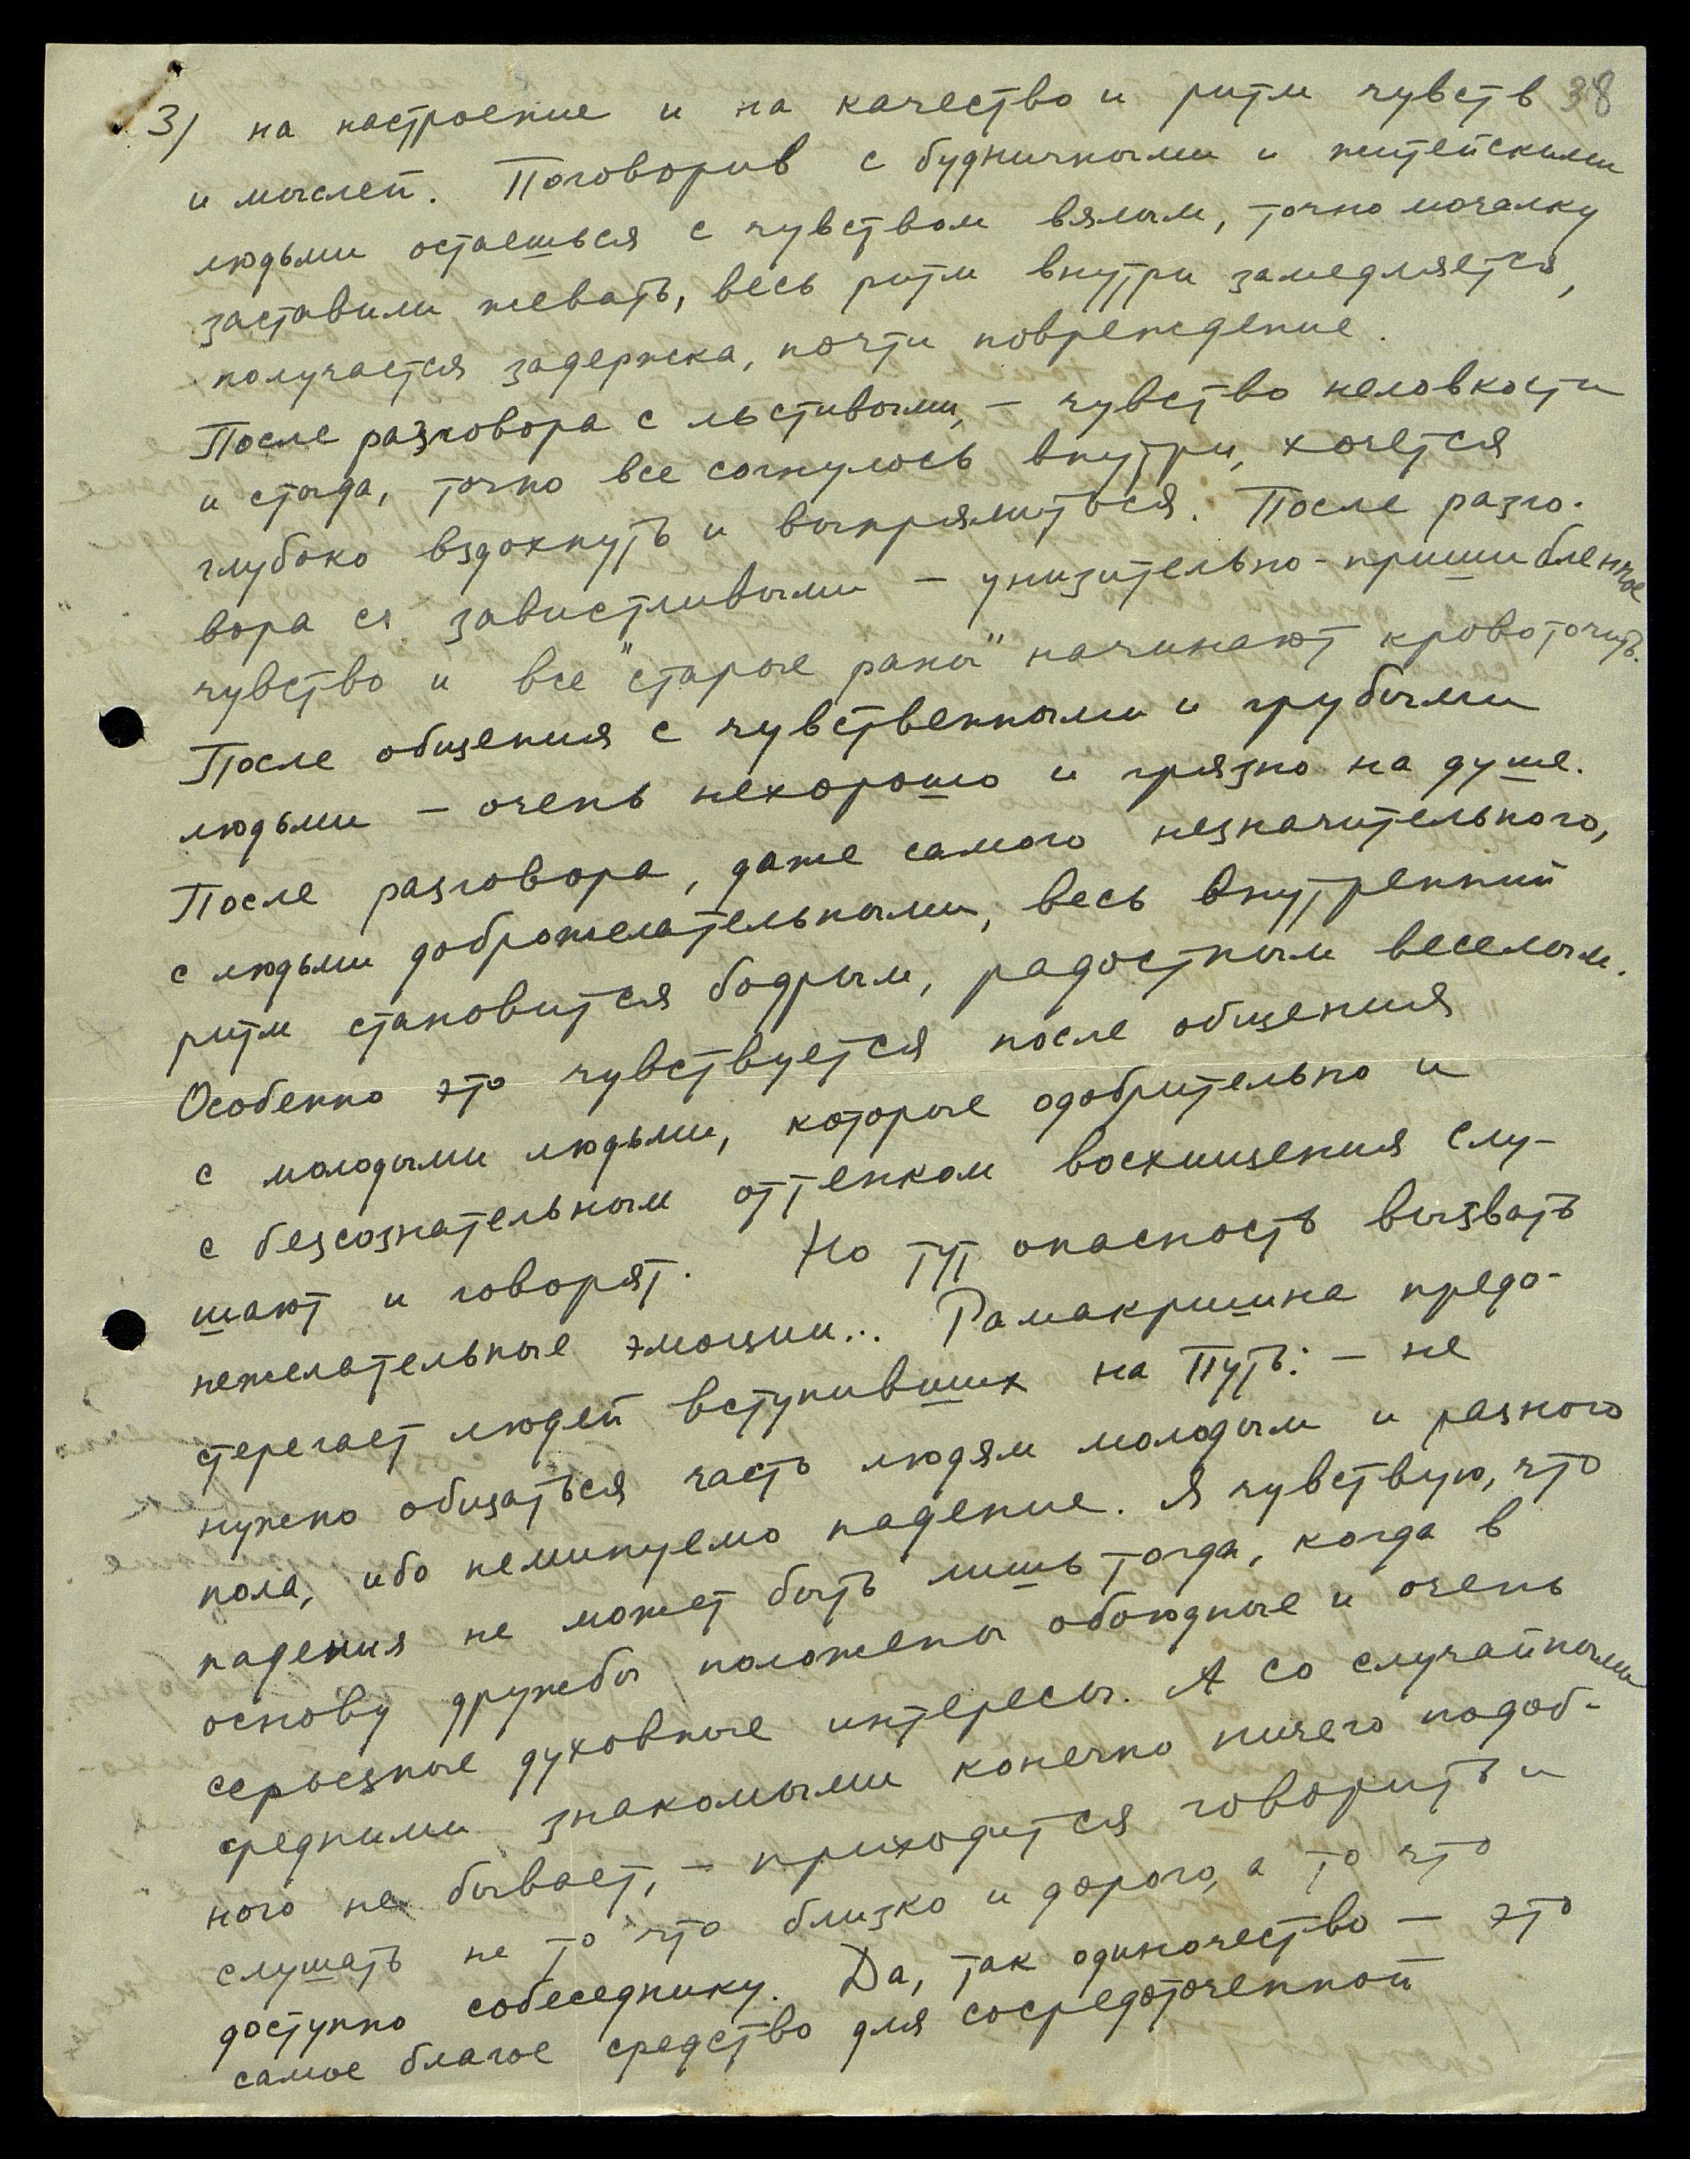 3) на настроение и на качество и ритм чувств 38
и мыслей. Поговорив с будничными и житейскими
людьми остаешься с чувством вялым, точно мочалку
заставили жевать, весь ритм внутри замедляется,
получается задержка, почти повреждение.
После разговора с льстивыми, – чувство неловкости
и стыда, точно все согнулось внутри, хочется
глубоко вздохнуть и выпрямиться. После разго-
вора с завистливыми – унизительно-пришибленное
чувство и все "старые раны" начинают кровоточить.
После общения с чувственными и грубыми
людьми – очень нехорошо и грязно на душе.
После разговора, даже самого незначительного,
с людьми доброжелательными, весь внутренний
ритм становится бодрым, радостным веселым.
Особенно это чувствуется после общения
с молодыми людьми, которые одобрительно и
с безсознательным оттенком восхищения слу-
шают и говорят. Но тут опасность вызвать
нежелательные эмоции... Рамакришна предо-
стерегает людей вступивших на Путь: – не
нужно общаться часто людям молодым и разного
пола, ибо неминуемо падение. Я чувствую, что
падения не может быть лишь тогда, когда в
основу дружбы положены обоюдные и очень
серьезные духовные интересы. А со случайными
средними знакомыми конечно ничего подоб-
ного не бывает, – приходится говорить и
слушать не то что близко и дорого, а то что
доступно собеседнику. Да, так одиночество – это
самое благое средство для сосредоточенной